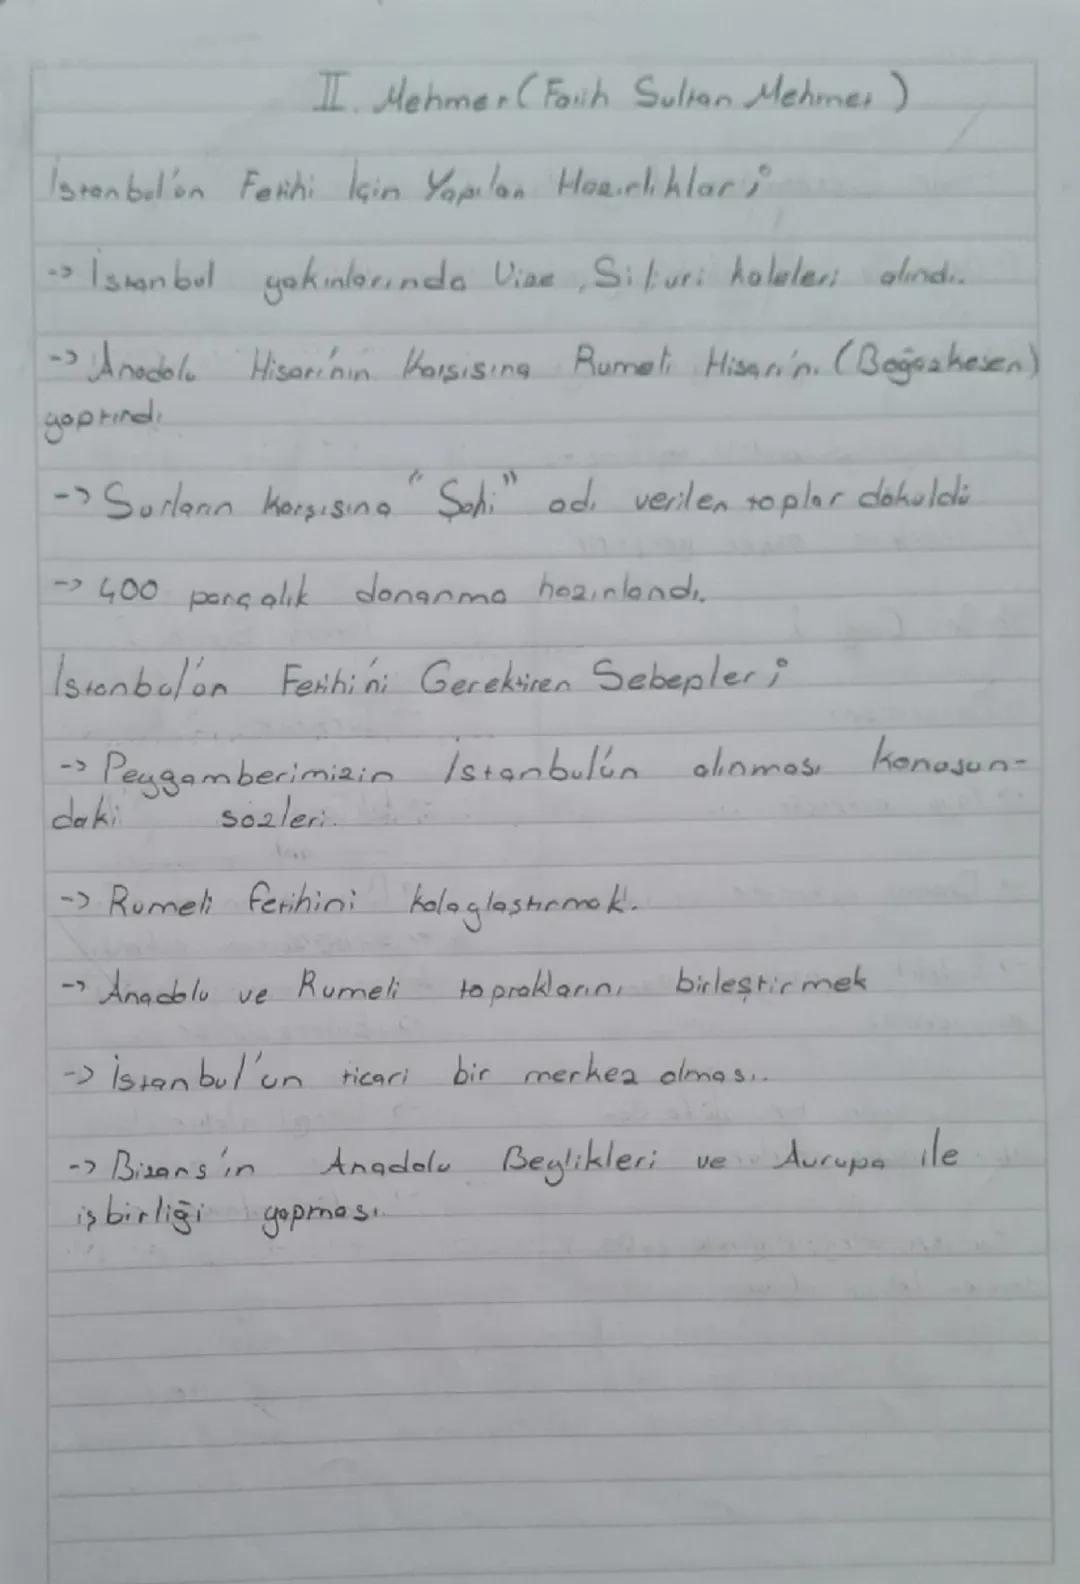 II. Mehmet (Fatih Sultan Mehmet)
İstanbul'un Fethi İçin Yapılan Hazırlıklar;
-> İstanbul yakınlarında Vize, Silivri kaleleri alındı.
-> Anadolu Hisarı'nın Karşısına Rumeli Hisarı'nı (Boğazkesen)
yaptırıdı
-> Surların Karşısına "Şahi" adı verilen toplar döküldü
-> 400 parçalık donanma hazırlandı.
İstanbul'un Fethi'ni Gerektiren Sebepler;
-> Peygamberimizin İstanbul'un alınması konusun-
daki sözleri.
-> Rumeli fethini kolaylaştırmak.
-> Anadolu ve Rumeli topraklarını birleştirmek
-> İstanbul'un ticari bir merkez olması.
-> Bizans'ın Anadolu Beylikleri ve Avrupa ile
işbirliği yapması.